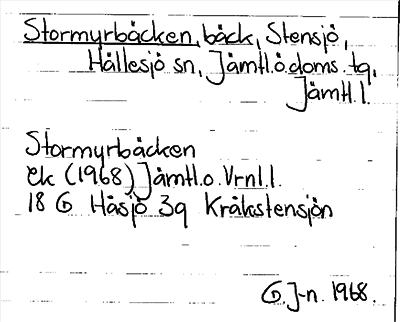 Stormyrbäcken, bäck, Stensjö,
Hällesjö sn, Jämtl.ö.doms.tg,
Jämtl.l.
Stormyrbäcken
Ek (1968) Jämtl.o.Vrnl.l.
18 G Håsjö 3g Kråkstensjön
G.J-n. 1968.